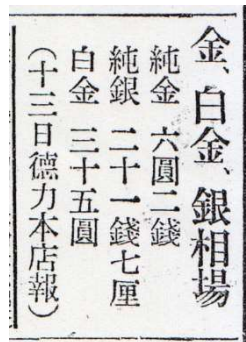 金、白金、銀相場
純金 六圓二錢
純銀 二十一錢七厘
白金 三十五圓
（十三日德力本店報）